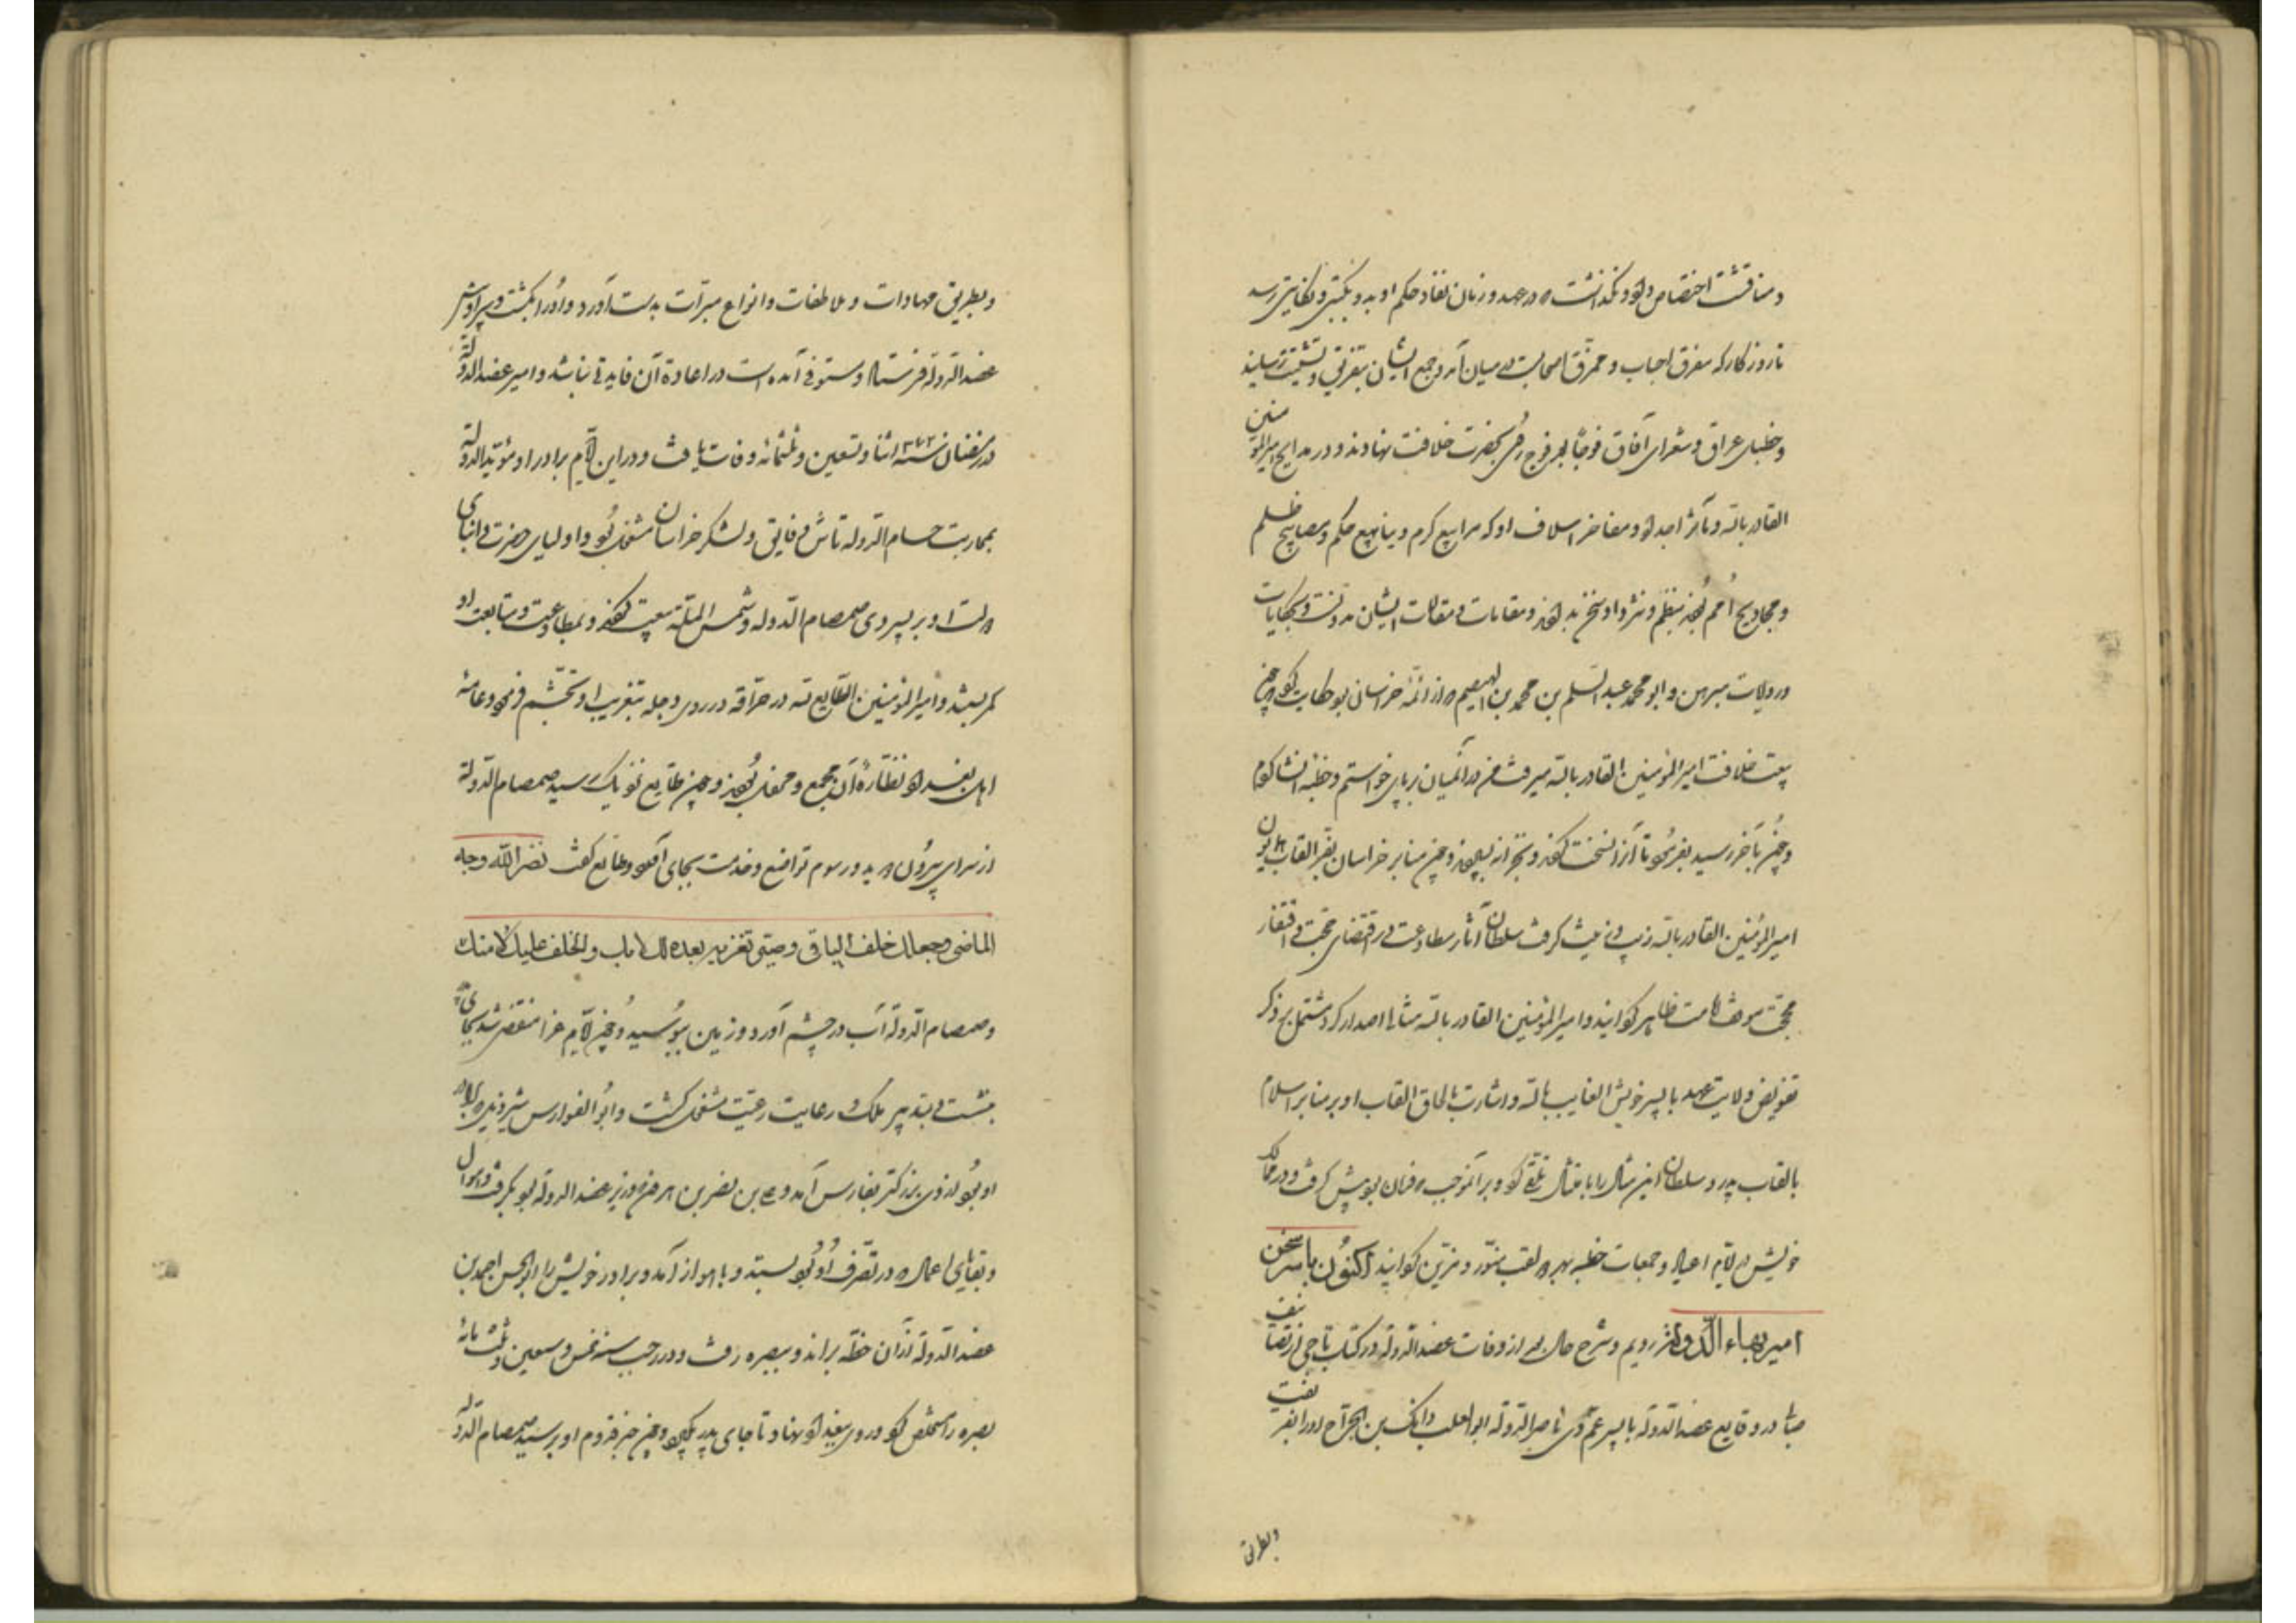 و مناقشت اختصاص داد و نگذاشت که در عهد و زمان نفاذ حکم او بدو نکبتی و نکایتی رسد
تا روزگار که مفرق احباب و ممزق اصحابست در میان آمد و جمع ایشان بتفریق و تشتیت رسانید
و خطبای عراق و شعرای آفاق فوجا بعد فوج رخ بحضرت خلافت نهادند و در مدایح امیرالمؤمنین
القادر بالله و مآثر اجداد و مفاخر اسلاف او که مرابیع کرم و ینابیع حکم و مصابیح ظلم
و مجادیح امم بودند بنظم و نثر داد سخن بدادند و مقامات و مقالات ایشان مدونست و بحکایات
و روایات مبرهن و ابو محمد عبدالسلم بن محمد بن الهیصم که از ائمه خراسان بود حکایت کرد که چون
بیعت خلافت امیر المؤمنین القادر بالله میرفت من در آنمیان بر پای خواستم و خطبه انشا کردم
و چون بآخر رسید بفرمود تا آنرا نسخت کردند و بخزانه سپردند و چون منابر خراسان بفر القاب همایون
امیرالمؤمنین القادر بالله زیب و زینت گرفت سلطان آثار مطاوعت در اقتضای حجت و اقتفار
محجت موقف امامت ظاهر گردانید و امیر المؤمنین القادر بالله مثالی اصدار کرد مشتمل بر ذکر
تفویض ولایت عهد با پسر خویش الغالب بالله و اشارت بالحاق القاب او بر منابر اسلام
بالقاب پدر و سلطان این مثال را بامتثال تلقی کرد و بر آنموجب که فرمان بود پیش گرفت و در ممالک
خویش در ایام اعیاد و جمعات خطبه بهر دو لقب منور و مزین گردانید اکنون با سر سخن
امیر بهاء الدوله رویم و شرح حال وی از وفات عضدالدوله در کتاب تاجی از تصانیف
صابی در وقایع عضدالدوله با پسر عم وی ناصرالدوله ابو تغلب و آنک بن الجراح او را بفریفت
وبطریق
وبطریق مهادات و ملاطفات و انواع مبرات بدست آورد و او را بکشت و سر او پیش
عضدالدوله فرستاد مستوفی آمده است در اعادة آن فایدتی نباشد و امیر عضدالدوله
در رمضان سنه ۳۷۲ اثنا و تسعین و ثلثمائه وفات یافت و در این ایام برادر او مؤیدالدوله
بمحاربت حسام الدوله تاش و فایق و لشکر خراسان مشغول بود و اولیای حضرت و انبای
دولت او بر پسر وی صمصام الدوله و شمس الملة بیعت کردند و بمطاوعت و متابعت او
کمر بستند و امیر المؤمنین الطایع لله در حراقه در روی دجله بتعزیت او تجشم فرمود و عامه
اهل بغداد بنظاره آن مجمع و محفل بودند و چون طایع نزدیک رسید صمصام الدوله
از سرای بیرون دوید و رسوم تواضع و خدمت بجای آورد و طایع گفت نضر الله وجه
الماضی وجعلک خلف الباقی وصیر تعزیته بعده لک لا بک والخلف علیک لا منک
و صمصام الدوله آب در چشم آورد و زمین ببوسید و چون ایام عزا منقضی شد بجای پدر
بنشست و بتدبیر ملک و رعایت رعیت مشغول گشت و ابوالفوارس شیرذیل که برادر
او بود از وی بزرگتر بفارس آمد و علی بن نصر بن هرون وزیر عضدالدوله بود بگرفت و اموال
و بقایای اعمال که در تصرف او بود بستد و باهواز آمد و برادر خویش را ابوالحسن احمد بن
عضدالدوله از آن خطه براند و ببصره رفت و در رجب سنه خمس و سبعین و ثلث مائه
بصره را مستخلص کرد و روی ببغداد نهاد تا جای پدر بگیرد و چون خبر قدوم او برسید صمصام الدوله